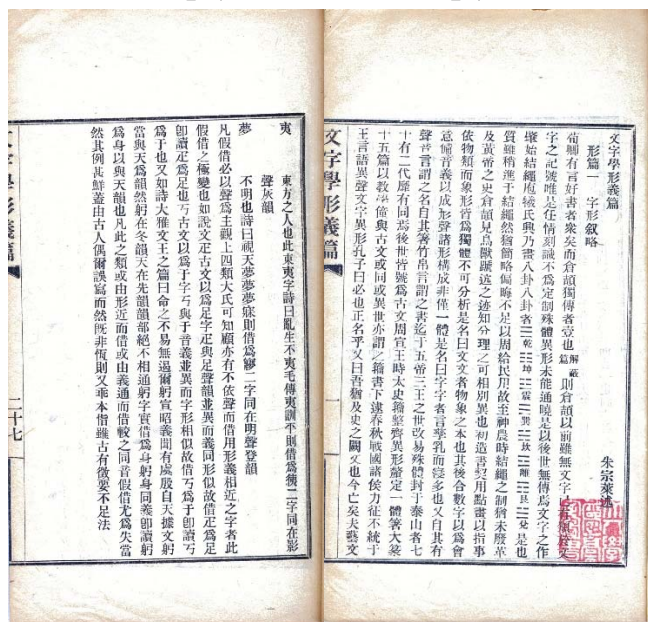 文字學形義篇
朱宗萊述
形篇一 字形叙略
荀卿有言好書者衆矣而倉頡獨傳者壹也解蔽篇則倉頡以前雖無文字
字之記號唯是任情刻識不爲定制殊體異形未能通曉是以後世無傳焉文字之作
肇始結繩庖犧氏興乃畫八卦八卦者☰乾☷坤☳震☶艮☵坎☲離☴巽☱兌是也
質雖稍進于結繩然猶簡略偏晦不足以周給民用故至神農時結繩之制猶未廢革
及黃帝之史倉頡見鳥獸蹏迒之迹知分理之可相別異也初造書契用點畫以指事
依物類而象形皆爲獨體不可分析是名曰文文者物象之本也其後合數字以爲會
意輔音義以成形聲諸形構成非僅一體是名曰字字者言孳乳而寖多也又自其有
聲音言謂之名自其箸竹帛言謂之書迄于五帝三王之世改易殊體封于泰山者七
十有二代靡有同焉後世皆號爲古文周宣王時太史籀整齊異形釐定一體箸大篆
十五篇以教學僮與古文或同或異世亦謂之籀書下逮春秋戰國諸侯力征不統于
王言語異聲文字異形孔子曰必也正名乎又曰吾猶及史之闕文也今亡矣夫藝文
文字學形義篇
一
夷 東方之人也此東夷字詩曰亂生不夷毛傳夷訓不則借爲彝二字同在影
聲灰韻
夢 不明也詩曰視天夢夢夢寐則借爲㝱二字同在明聲登韻
凡假借必以聲爲主觀上四類大氏可知顧亦有不依聲而借用形義相近之字者此
假借之極變也如說文疋古文以爲足字疋與足聲韻並異而義同形似故借疋爲足
卽讀疋爲足也丂古文以爲于字丂與于音義並異而字形相似故借丂爲于卽讀丂
爲于也又如詩大雅文王之篇曰命之不易無遏爾躬宣昭義問有虞殷自天據文躬
當與天爲韻然躬在冬韻天在先韻韻部絕不相通躬字實借爲身躬身同義卽讀躬
爲身以與天韻也凡此之類或由形近而借或由義通而借較之同音假借尤爲失當
然其例甚鮮蓋由古人偶爾誤寫而然旣非恆則又乖本恉雖古有徵要不足法
文字學形義篇
二十七